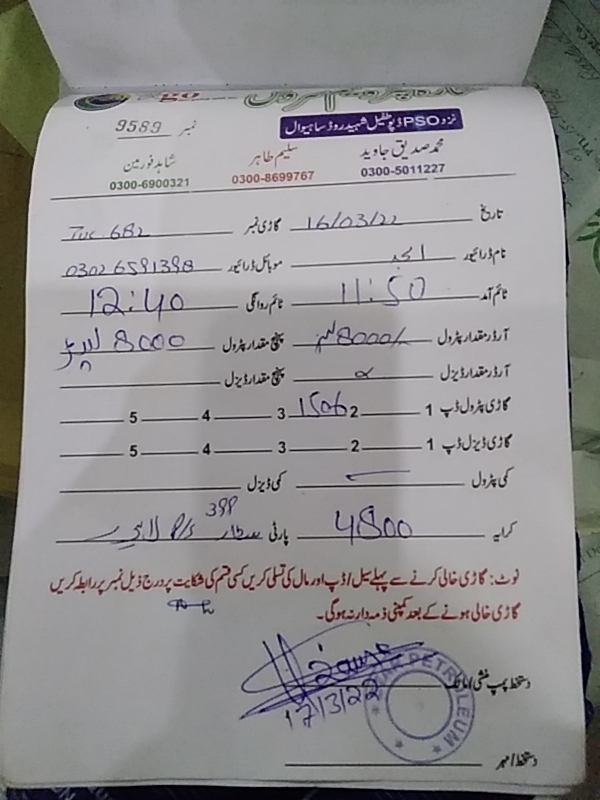 go
نزد PSO ڈپو طفیل شہید روڈ ساہیوال
نمبر 9589
محمد صدیق جاوید سلیم طاہر شاہد فورمین
0300-5011227 0300-8699767 0300-6900321
تاریخ 16/03/22 گاڑی نمبر TUC 682
نام ڈرائیور امجد موبائل ڈرائیور 0302 6591398
ٹائم آمد 11:50 ٹائم روانگی 12:40
آرڈر مقدار پٹرول 8000/ لیٹر پہنچ مقدار پٹرول 8000 لیٹر
آرڈر مقدار ڈیزل پہنچ مقدار ڈیزل
گاڑی پٹرول ڈپ 1 2 1506 3 4 5
گاڑی ڈیزل ڈپ 1 2 3 4 5
کمی پٹرول کمی ڈیزل
کرایہ 4800 پارٹی ستار P/S 399
نوٹ: گاڑی خالی کرنے سے پہلے سیل / ڈپ اور مال کی تسلی کریں کسی قسم کی شکایت پر درج ذیل نمبر پر رابطہ کریں
گاڑی خالی ہونے کے بعد کمپنی ذمہ دار نہ ہوگی۔
دستخط پمپ منشی / مالک
17/3/22
PETROLEUM
دستخط / مہر